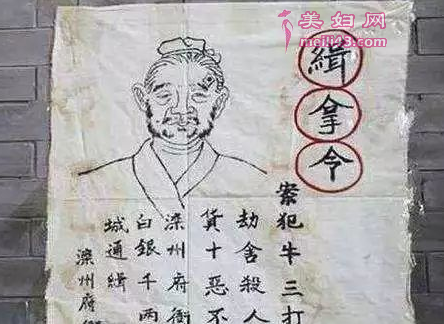 美妇网
meili43.com
緝拿令
案犯牛三打
劫舍殺人
貨十惡不
滦州府衙
白銀千两
城通緝
滦州府衙